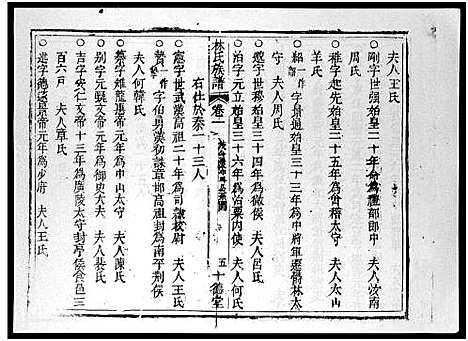 夫人王氏
○剛字世强始皇二十年命為禮部郎中 夫人汝南
周氏
○稚字起先始皇二十五年為會稽太守 夫人太山
羊氏
○紹一作 字景過始皇三十三年為中將軍遷桂林太
守 夫人周氏
○邈字世移始皇三十四年為徽侯 夫人呂氏
○治字元立始皇三十六年為治粟內使 夫人何氏
右仕於秦一十三人
林氏族譜 卷一 五十 德堂
○憲字世武漢高祖二十年為司隸校尉 夫人王氏
○贄一作 字伯勇漢初讓章邯高祖封為南平荆侯
夫人何韓氏
○蔡字雄龍惠帝元年為中山太守 夫人陳氏
○別字元賢文帝元年為御史大夫 夫人裴氏
○吉字央仁文帝十三年為廣陵太守封亭侯食邑三
百六戸 夫人章氏
○進字德遠景帝元年為少府 夫人王氏